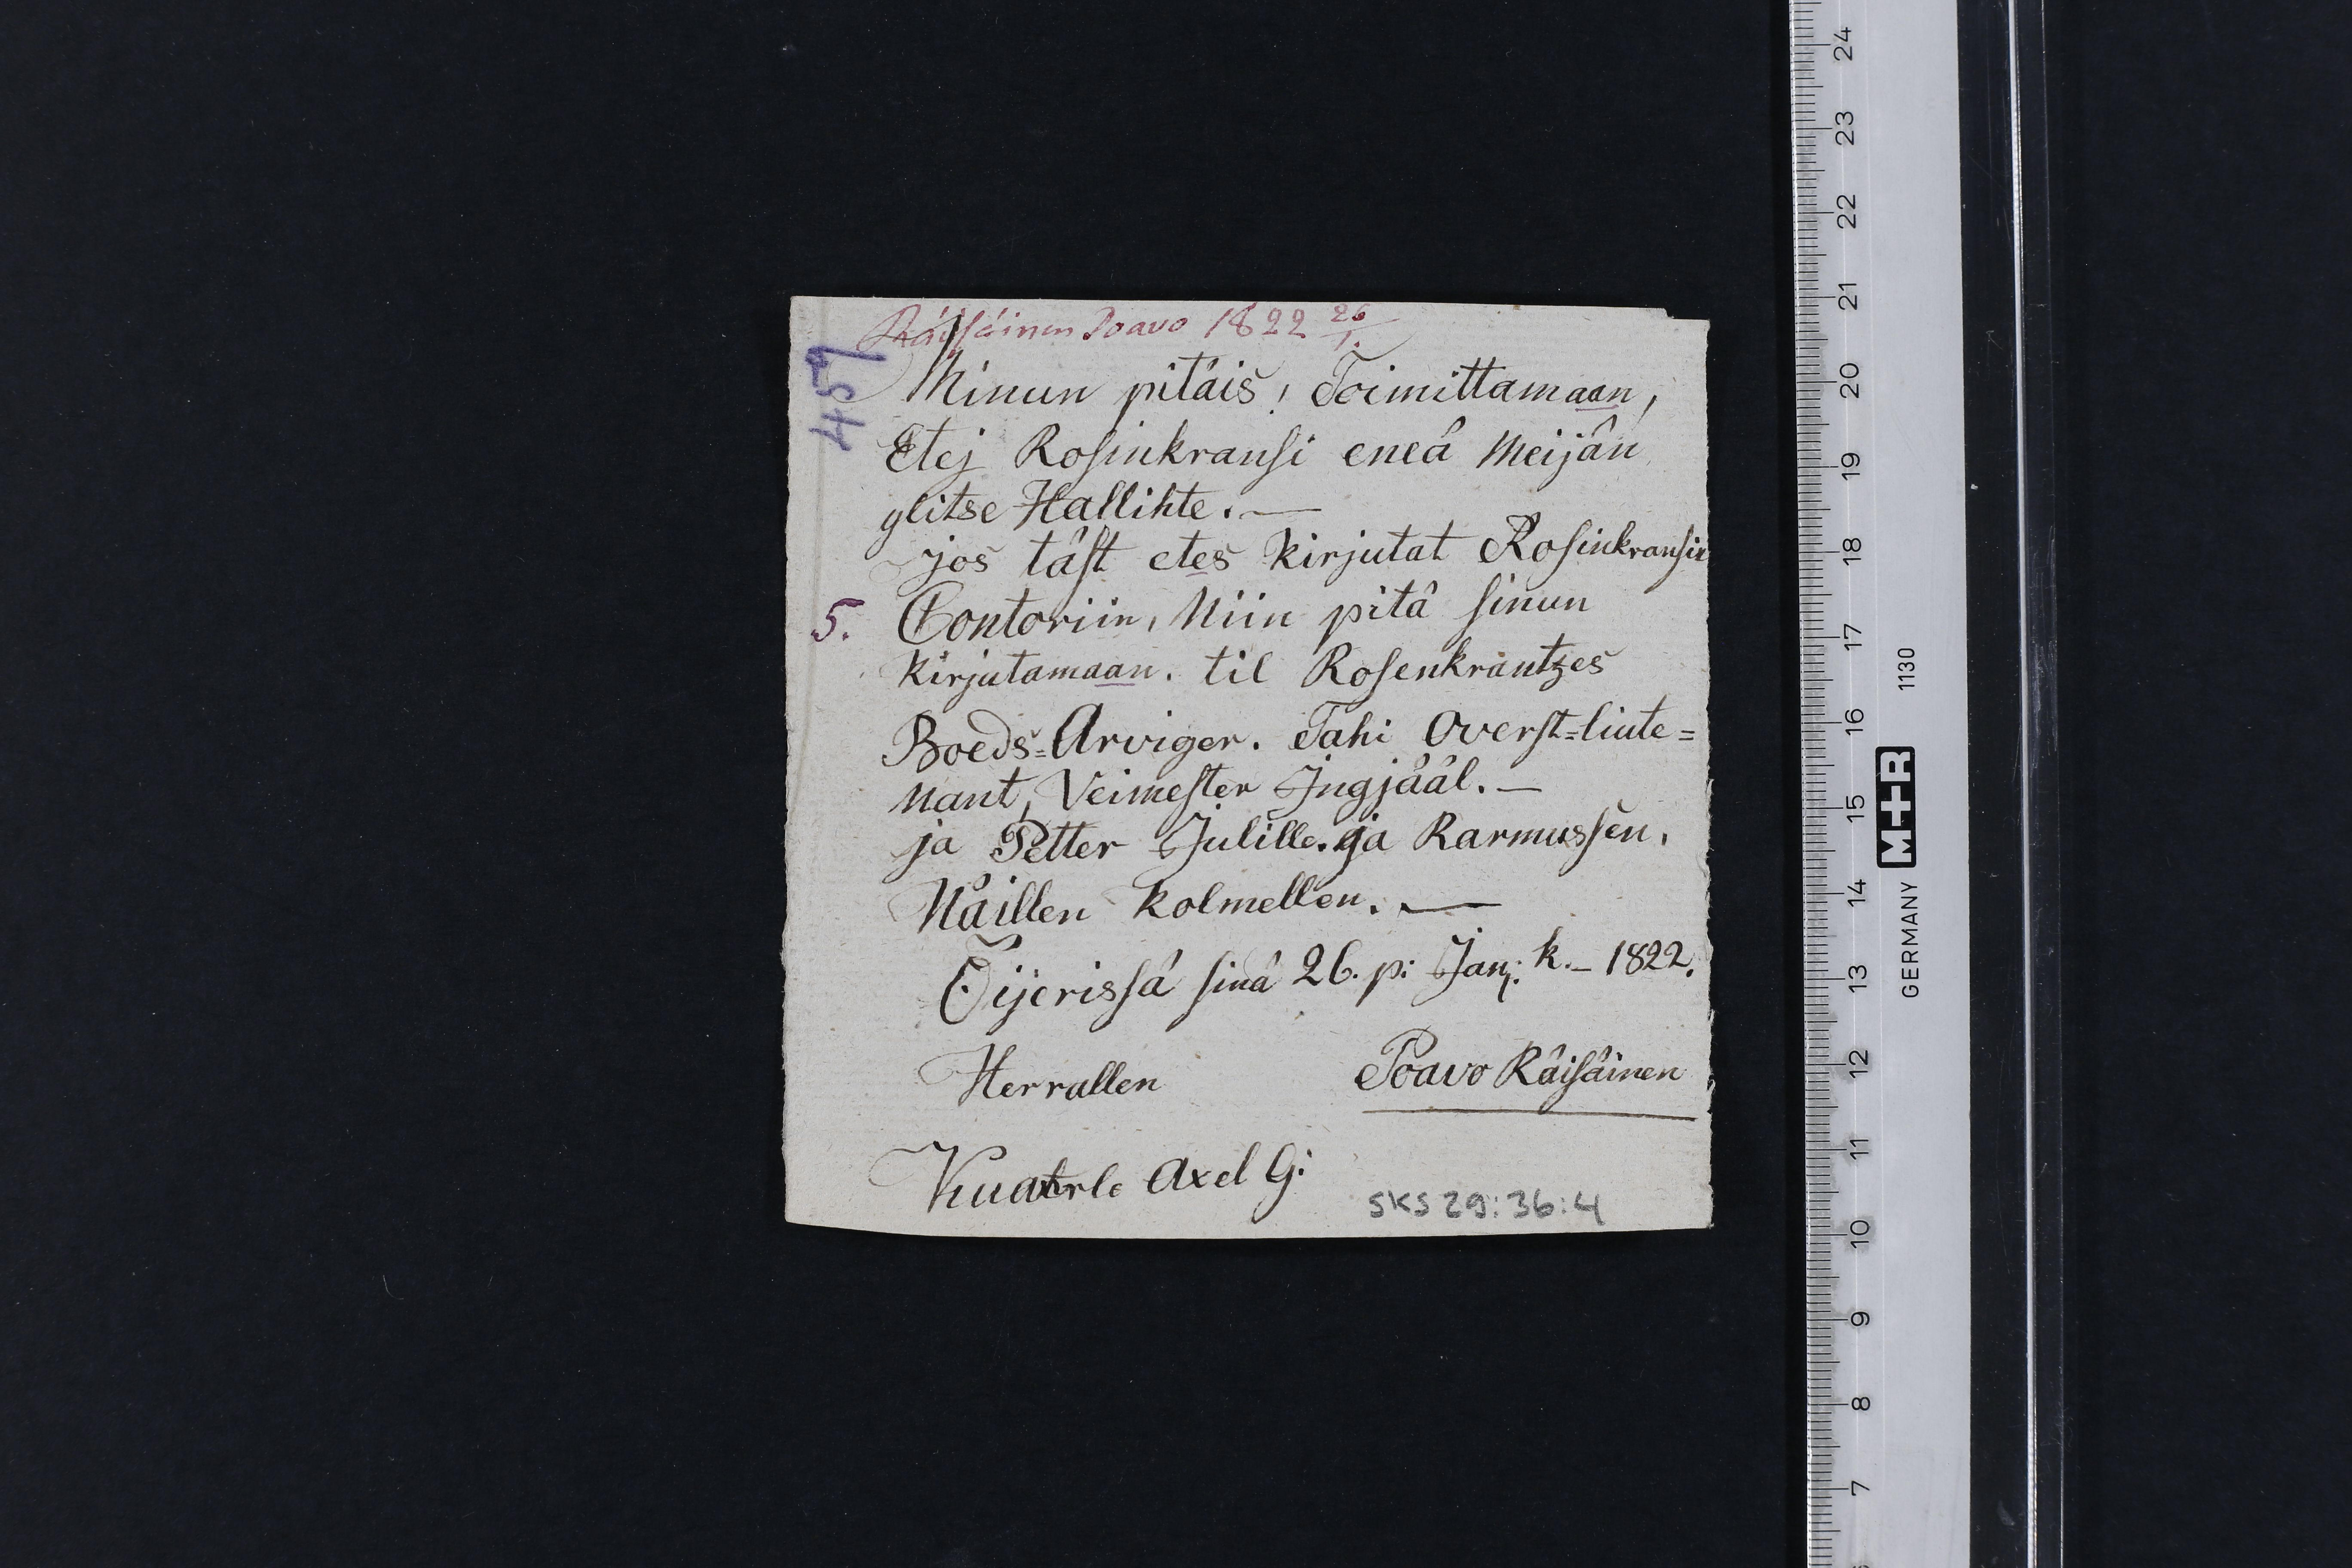 Räisäinen Poavo 1822 26/1.
457
Minun pitäis, Toimittamaan,
Etej Rosinkransi eneä Meijän
glitse Hallihte. —
jos täst etes kirjutat Rosinkransin
5. Contoriin, Niin pitä sinun
kirjutamaan. til Rosenkrantzes
Boeds=Arviger. Tahi Overst=liute=
nant, Veimester Ingjääl. —
ja Petter Julille. ja Rarmussen,
Näillen kolmellen. —
Öijerissä sinä 26. p: Jan: k. – 1822.
Herrallen Poavo Räisäinen
Axel G:
SKS 29:36:4
24
23
22
21
20
19
18
17
16
15
14
13
12
11
10
9
8
7
GERMANY M+R 1130